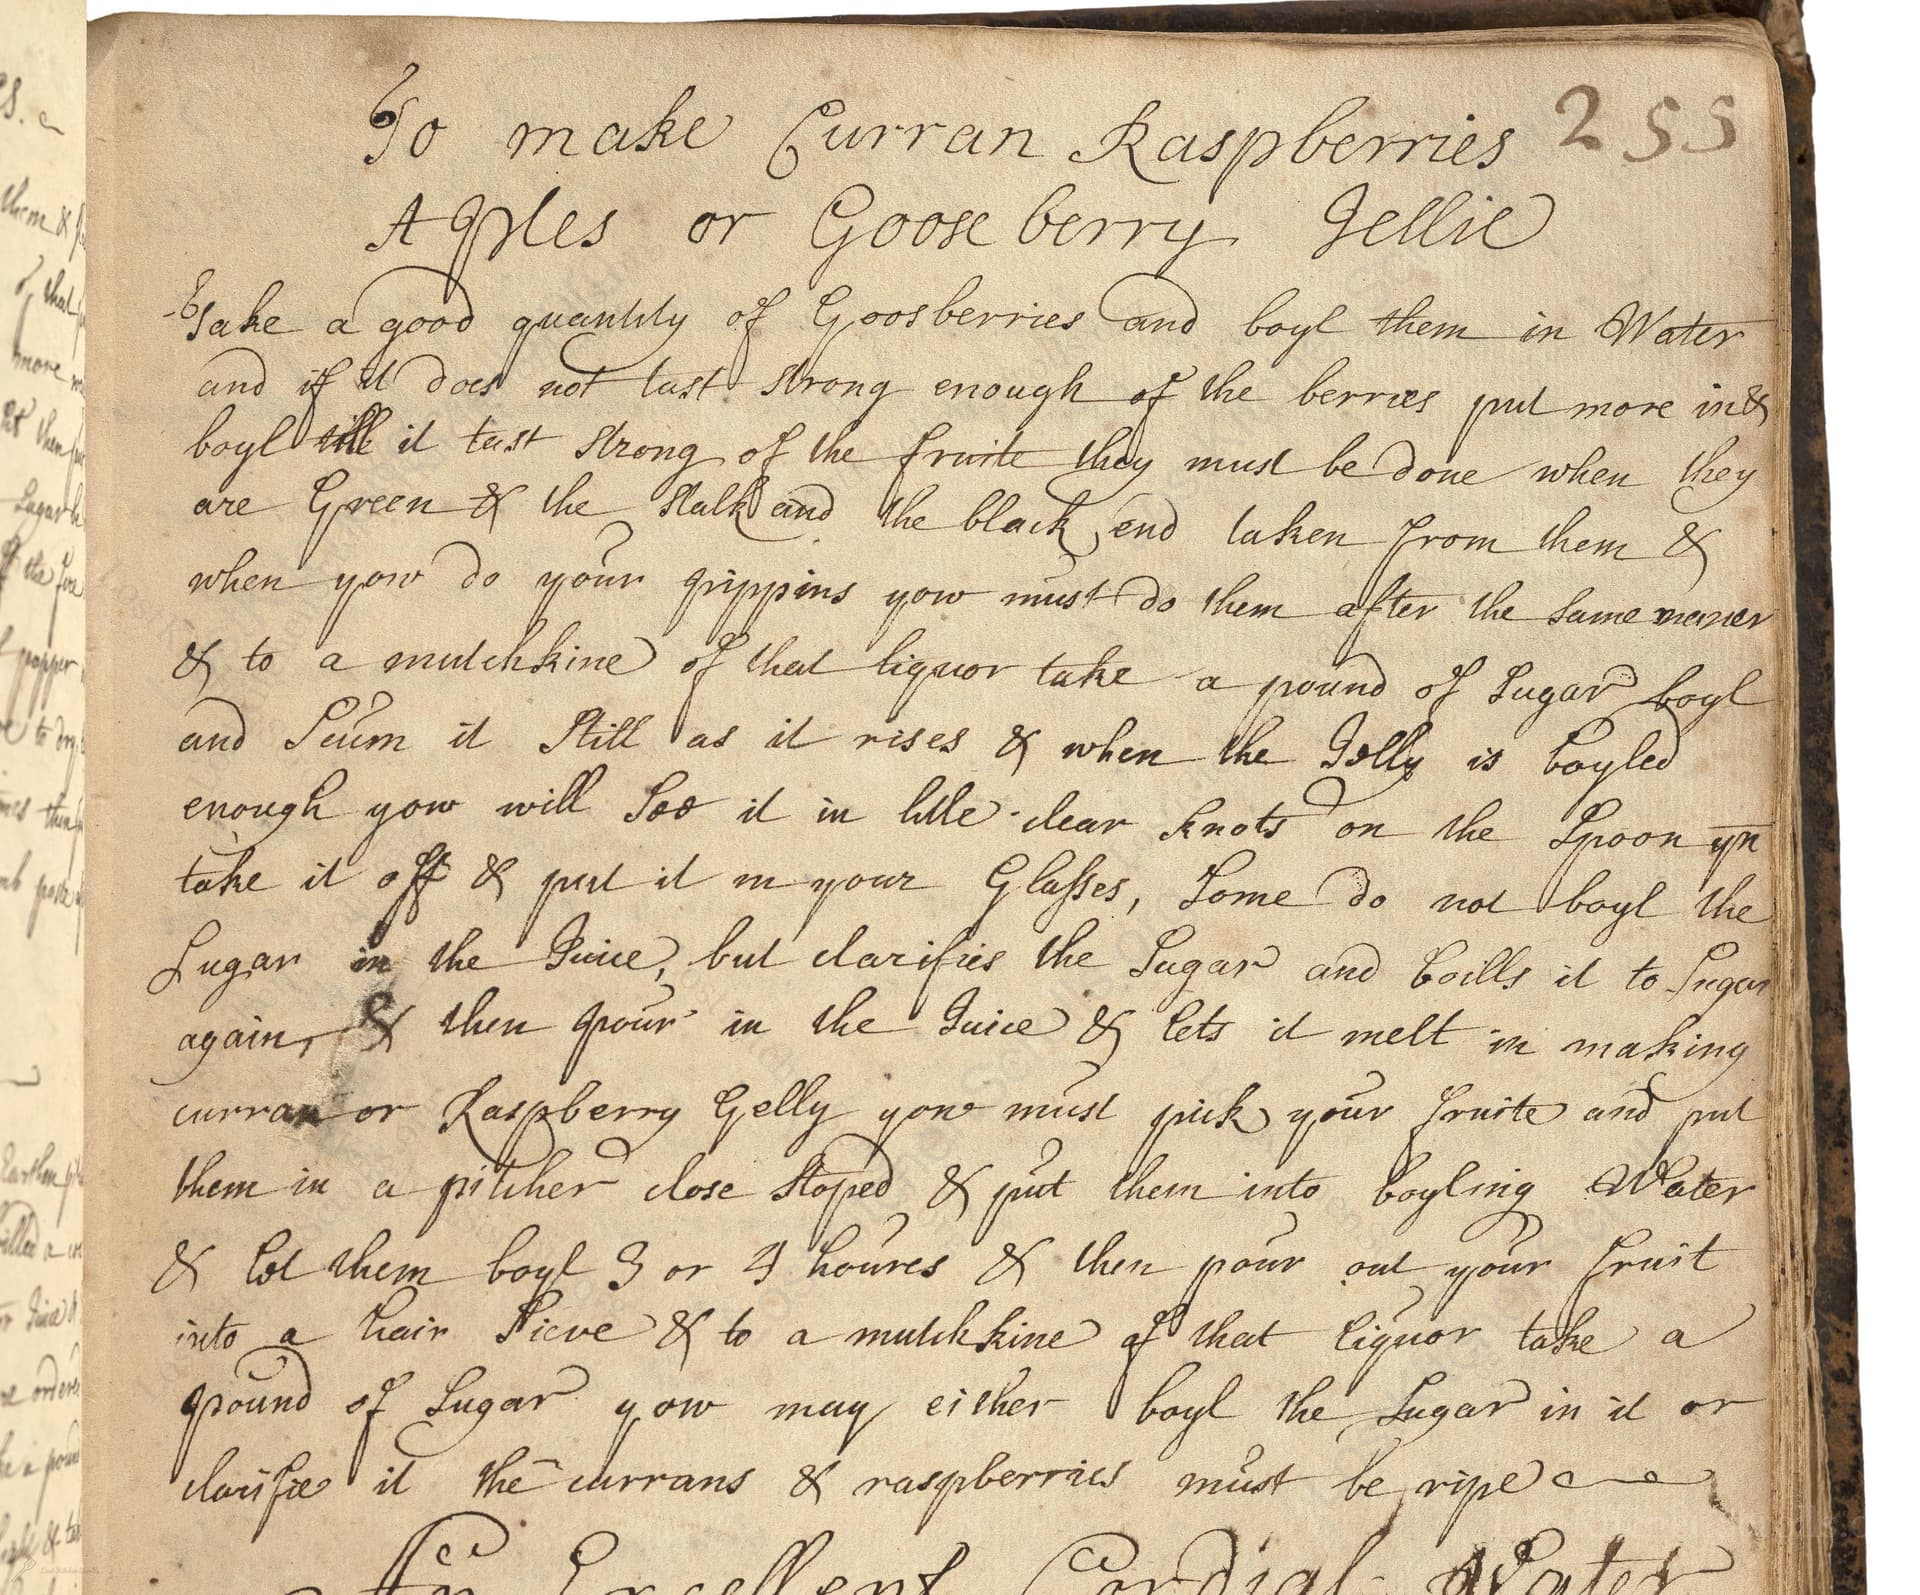 To make Curran Raspberries 255
Aples or Gooseberry Jellie
Take a good quantity of Goosberries and boyl them in Water
and if it does not tast strong enough of the berries put more in &
boyl till it tast strong of the fruite they must be done when they
are Green & the stalk and the black end taken from them &
when yow do your pippins yow must do them after the same maner
& to a mutchkine of that liquor take a pound of Sugar boyl
and Scum it still as it rises & when the Jelly is boyled
enough yow will see it in litle clear knots on the Spoon yn
take it off & put it in your Glasses, Some do not boyl the
Sugar in the Juice, but clarifies the Sugar and boills it to Sugar
again, & then pour in the Juice & lets it melt in making
curran or Raspberry Gelly yow must pick your fruite and put
them in a pitcher close stoped & put them into boyling Water
& let them boyl 3 or 4 houres & then pour out your fruit
into a hair Sieve & to a mutchkine of that liquor take a
pound of Sugar yow may either boyl the Sugar in it or
clarifie it the currans & raspberries must be ripe
An Excellent Cordial Water